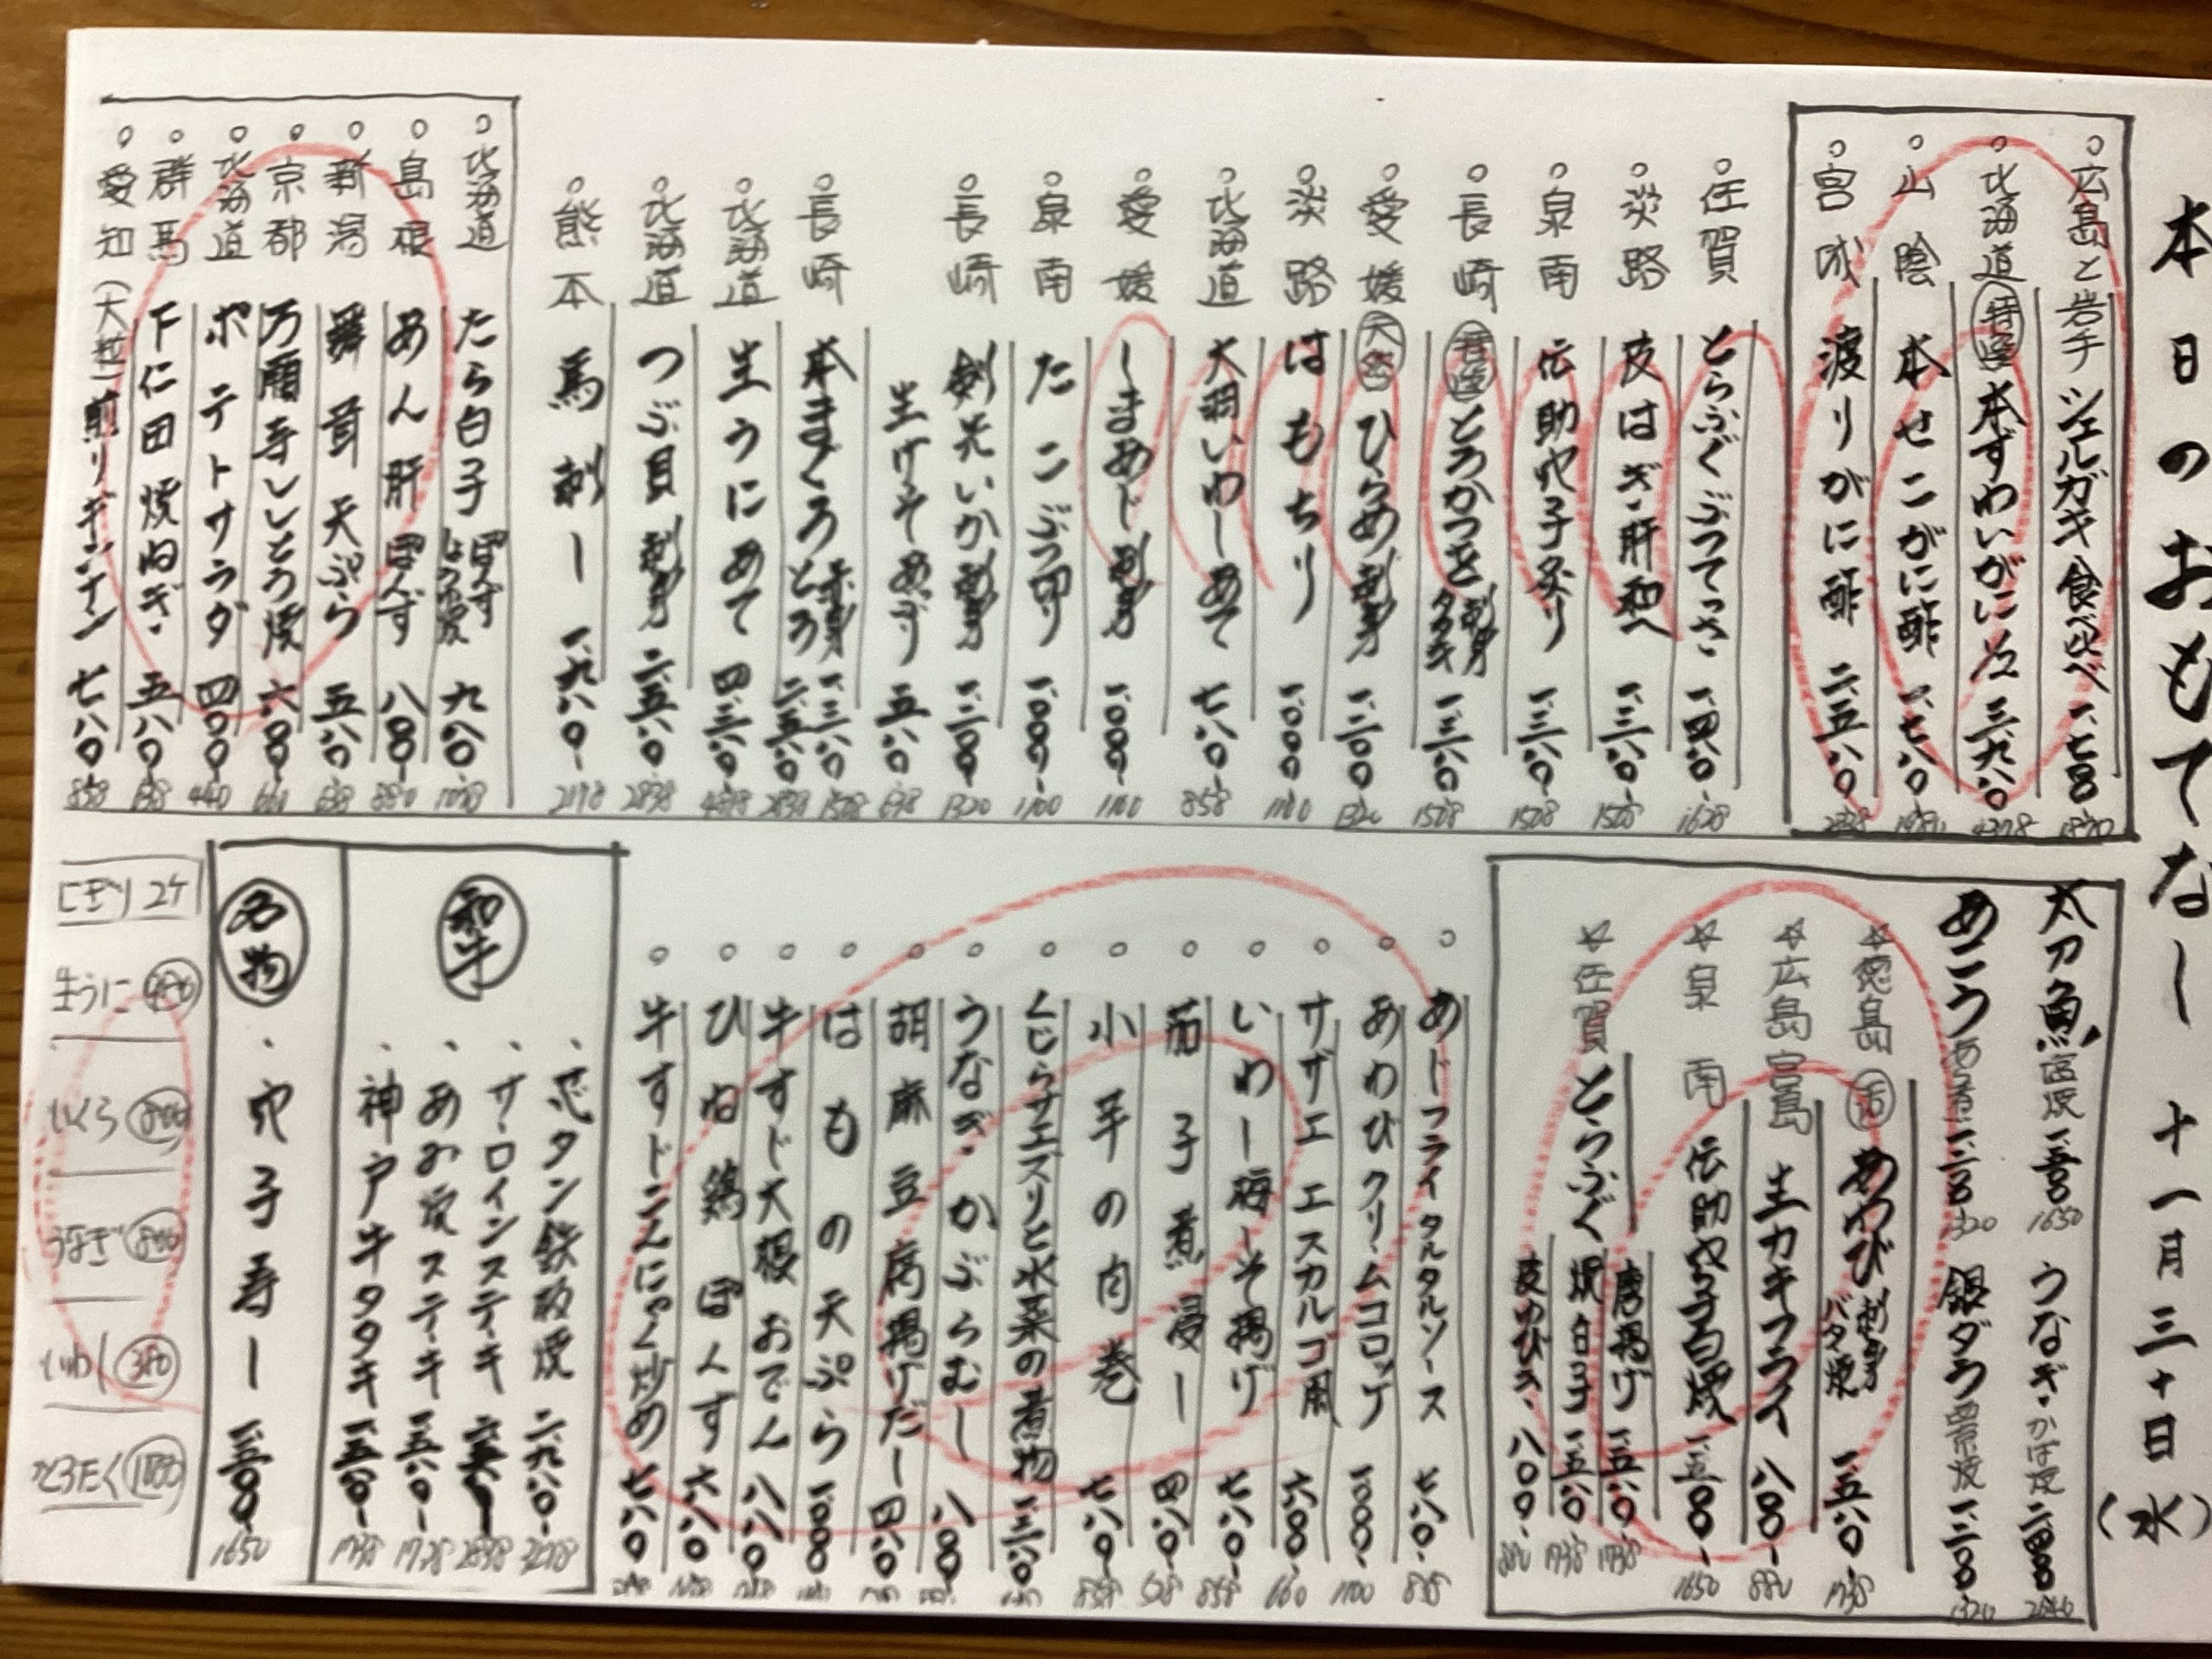 本日のおもてなし 十一月三十日(水)
広島と岩手 シェルガキ食べ比べ 一、七〇〇 1870
北海道 特選 本ずわいがに 1/2 三、九八〇 4378
山陰 本せこがに酢 一、七八〇
宮城 渡りがに酢 二、五八〇
佐賀 とらふぐぶつてっさ 一、四八〇 1628
淡路 皮はぎ・肝和へ 一、三八〇 1518
泉南 伝助穴子炙り 一、三八〇 1518
長崎 とろかつを 刺身 タタキ 一、三八〇 1518
愛媛 天然 ひらめ刺身 一、二〇〇 1320
淡路 はもちり 一、〇〇〇 1100
北海道 大羽いわしあて 七八〇 858
愛媛 しまあじ刺身 一、〇〇〇 1100
泉南 たこぶつ切り 一、〇〇〇 1100
長崎 剣先いか刺身 一、二〇〇 1320
生げそあぶり 五八〇 638
長崎 本まぐろ 赤身 一、三八〇 1518
とろ 二、五八〇 2838
北海道 生うにあて 四、三八〇
北海道 つぶ貝刺身 二、五八〇 2838
熊本 馬刺し 一、九八〇 2178
北海道 たら白子 ぽんず 九八〇 1078
島根 あん肝 ぽんず 八〇〇 880
新潟 舞茸天ぷら 五八〇 638
京都 万願寺ししとう焼 六〇〇 660
北海道 ポテトサラダ 四〇〇 440
群馬 下仁田焼ねぎ 五八〇 638
愛知(大粒)煎りギンナン 七八〇 858
太刀魚 塩焼 一、五〇〇 1650
うなぎ・かば焼 二、四〇〇 2640
あこう 一、二〇〇 1320
銀ダラ 西京焼 一、二〇〇 1320
☆徳島 活 あわび 刺身 バタ焼 一、五八〇 1738
☆広島宮島 生カキフライ 八〇〇 880
☆泉南 伝助穴子白焼 一、五〇〇 1650
☆佐賀 とらふぐ 唐揚げ 一、五八〇 1738
焼白子 一、五八〇 1738
皮わびき 八〇〇 880
あじフライ タルタルソース 七八〇 858
あわびクリームコロッケ 一、〇〇〇 1100
サザエ エスカルゴ風 六〇〇 660
いわし梅しそ揚げ 七八〇 858
茄子煮浸し 四八〇 528
小芋の肉巻 七八〇 858
くじらサエズリと水菜の煮物 一、三八〇
うなぎ・かぶらむし 八〇〇
胡麻豆腐揚げだし 四八〇
はもの天ぷら 一、〇〇〇
牛すじ大根おでん 八八〇
ひね鶏ぽんず 六八〇
牛すじこんにゃく炒め 七八〇
和牛
、芯タン鉄板焼 二、九八〇 3278
、サーロインステーキ 二、五八〇 2838
、あみ焼ステーキ 一、五八〇 1738
、神戸牛タタキ 一、五八〇 1738
名物
、穴子寿し 一、五〇〇 1650
にぎり 2ケ
生うに
いくら 800
うなぎ 800
いわし 380
とろたく